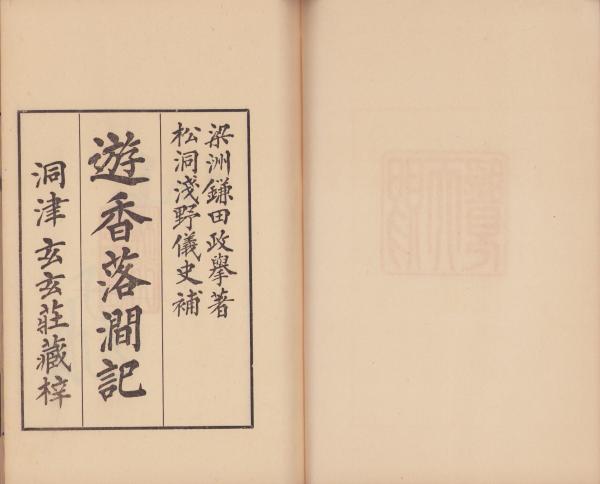 梁洲鎌田政擧著
松洞淺野儀史補
遊香落澗記
洞津玄玄莊藏梓